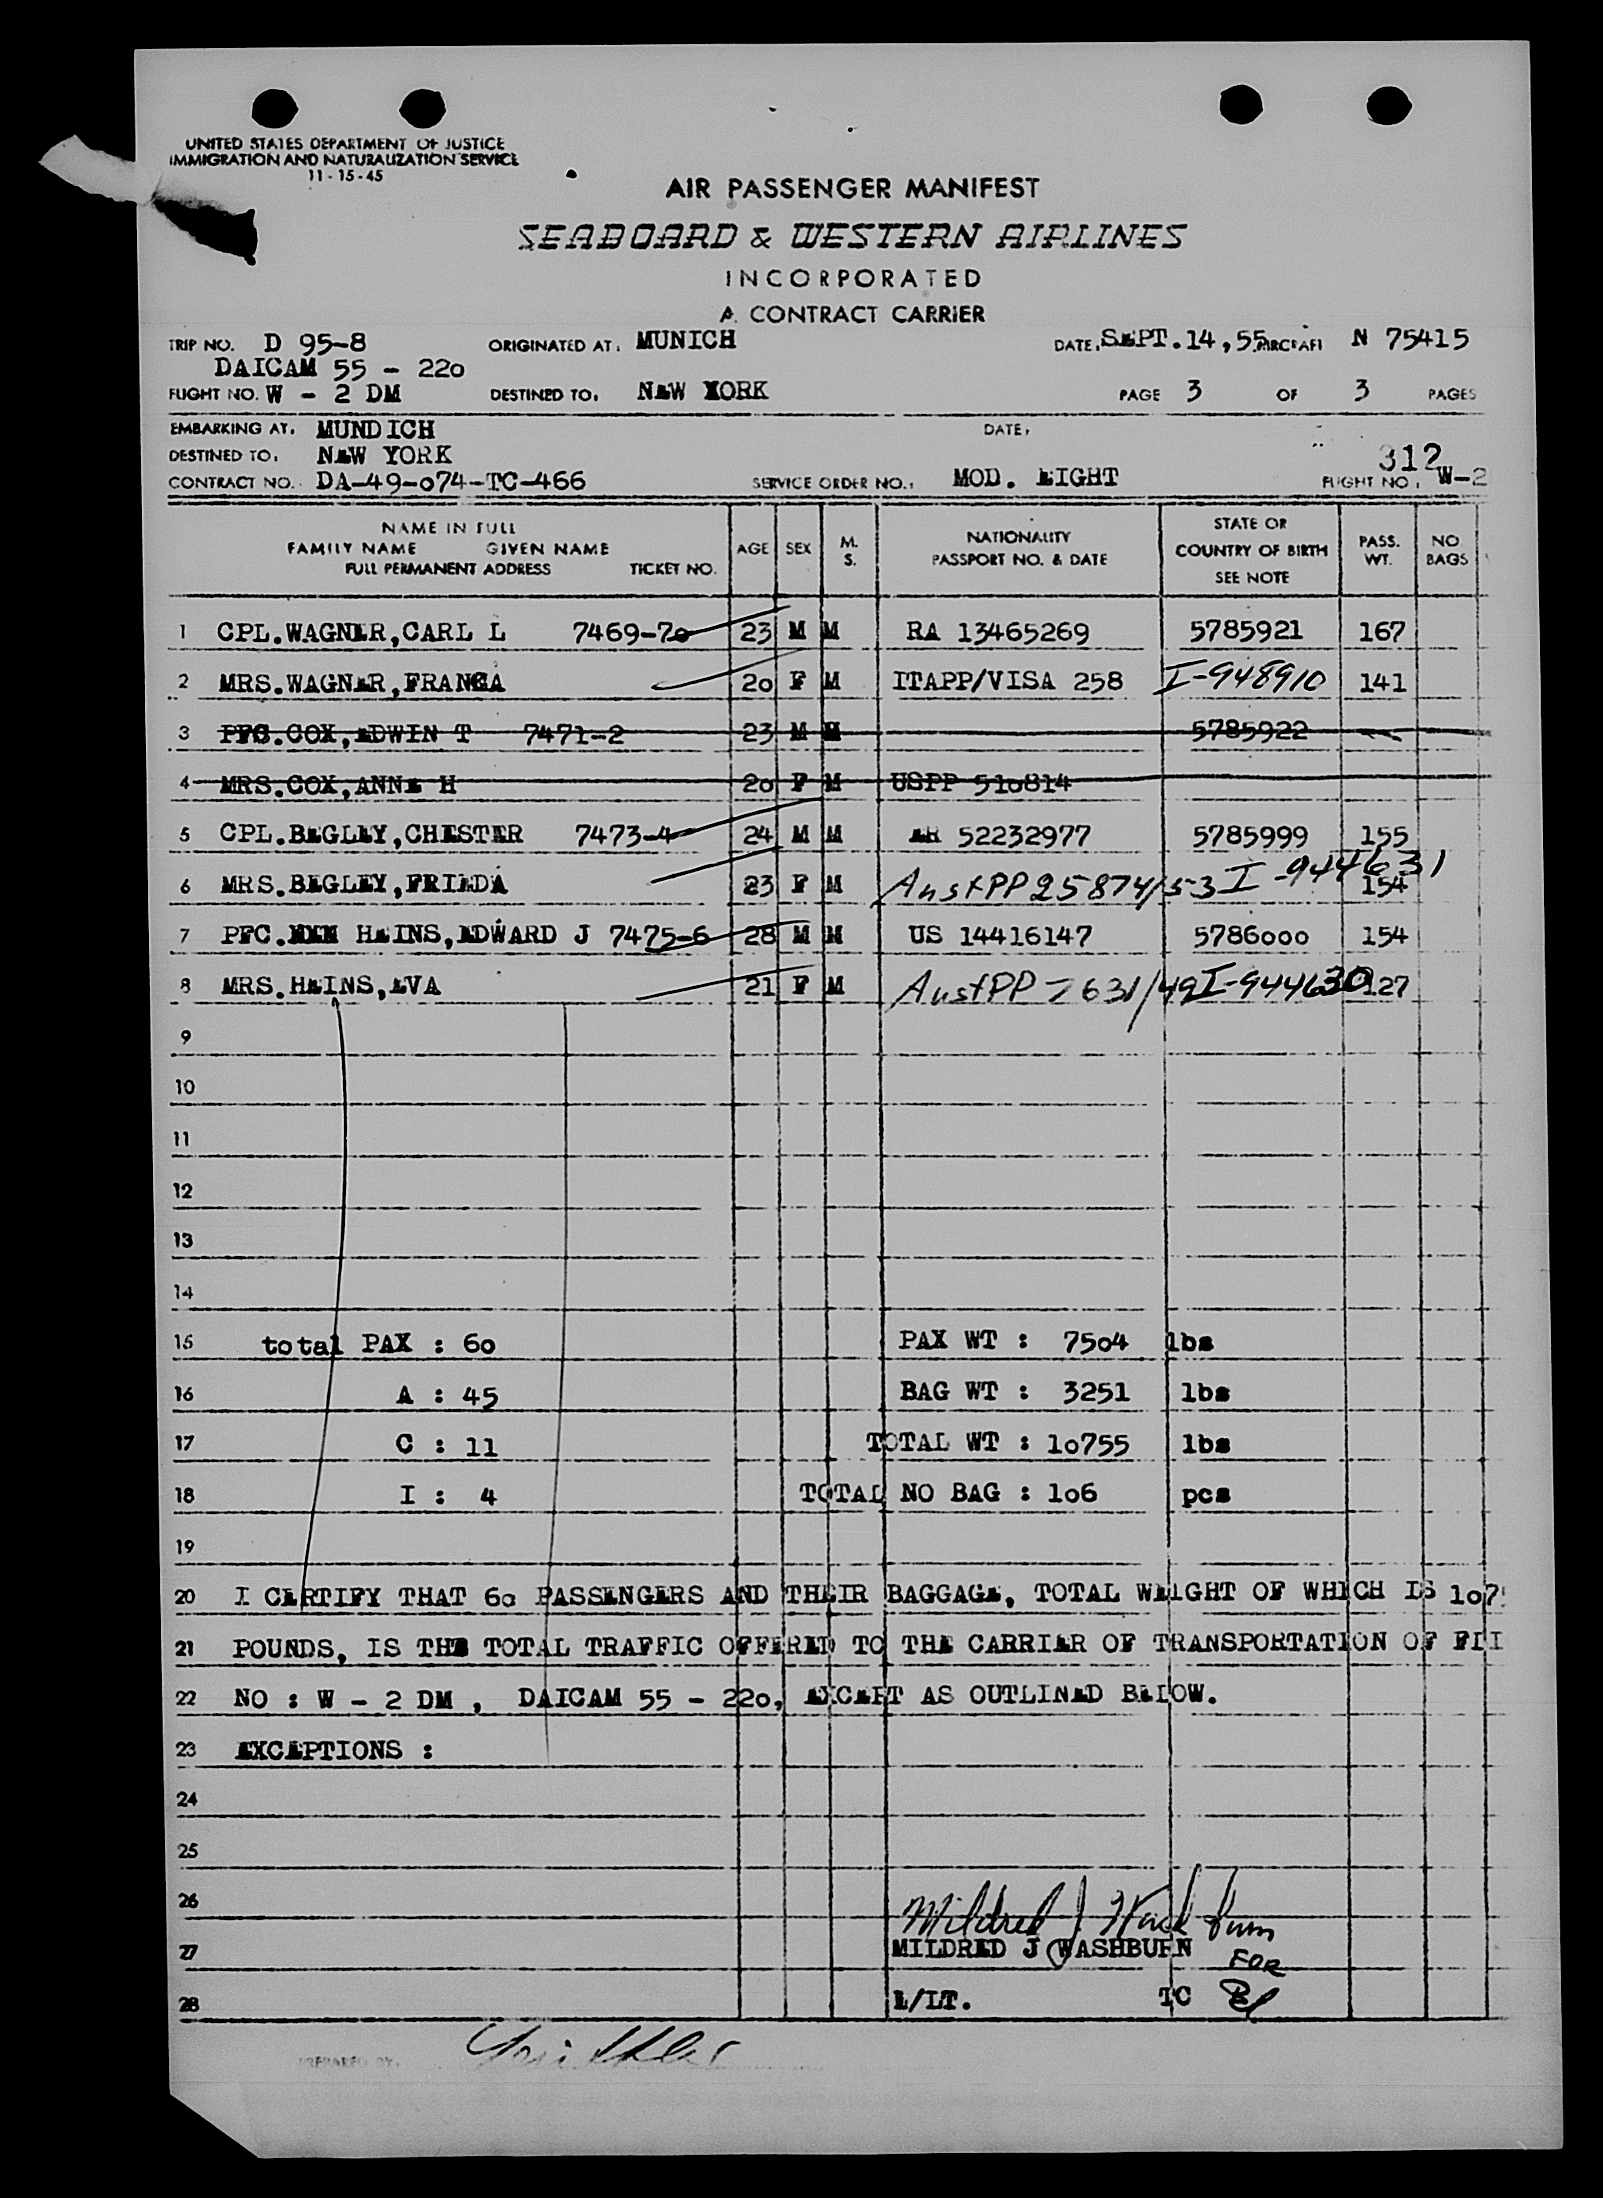 UNITED STATES DEPARTMENT OF JUSTICE
IMMIGRATION AND NATURALIZATION SERVICE
11-15-45
AIR PASSENGER MANIFEST
SEABOARD & WESTERN AIRLINES
INCORPORATED
A CONTRACT CARRIER
TRIP NO. D 95-8 ORIGINATED AT: MUNICH DATE: SEPT.14,55 AIRCRAFT N 75415
DAICAM 55 - 220
FLIGHT NO. W - 2 DM DESTINED TO: NEW YORK PAGE 3 OF 3 PAGES
EMBARKING AT: MUNDICH DATE:
DESTINED TO: NEW YORK 312
CONTRACT NO. DA-49-074-TC-466 SERVICE ORDER NO.: MOD. EIGHT FLIGHT NO: W-2
NAME IN FULL
FAMILY NAME GIVEN NAME
FULL PERMANENT ADDRESS TICKET NO. AGE SEX M. S. NATIONALITY PASSPORT NO. & DATE STATE OR COUNTRY OF BIRTH SEE NOTE PASS. WT. NO BAGS
1 CPL.WAGNER,CARL L 7469-70 23 M M RA 13465269 5785921 167
2 MRS.WAGNER,FRANCA 20 F M ITAPP/VISA 258 I-948910 141
3 PFC.COX,EDWIN T 7471-2 23 M M 5785922
4 MRS.COX,ANNE H 20 F M USPP 510814
5 CPL.BEGLEY,CHESTER 7473-4 24 M M ER 52232977 5785999 155
6 MRS.BEGLEY,FRIEDA 23 F M AustPP 25874/53 I-944631 154
7 PFC. HEINS,EDWARD J 7475-6 28 M M US 14416147 5786000 154
8 MRS.HEINS,EVA 21 F M AustPP 7631/49 I-944630 127
9
10
11
12
13
14
15 total PAX : 60 PAX WT : 7504 lbs
16 A : 45 BAG WT : 3251 lbs
17 C : 11 TOTAL WT : 10755 lbs
18 I : 4 TOTAL NO BAG : 106 pcs
19
20 I CERTIFY THAT 60 PASSENGERS AND THEIR BAGGAGE, TOTAL WEIGHT OF WHICH IS 107
21 POUNDS, IS THE TOTAL TRAFFIC OFFERED TO THE CARRIER OF TRANSPORTATION OF FLI
22 NO : W - 2 DM , DAICAM 55 - 220, EXCEPT AS OUTLINED BELOW.
23 EXCEPTIONS :
24
25
26 Mildred J Washburn
27 MILDRED J WASHBURN FOR
28 1/LT. TC
PREPARED BY: